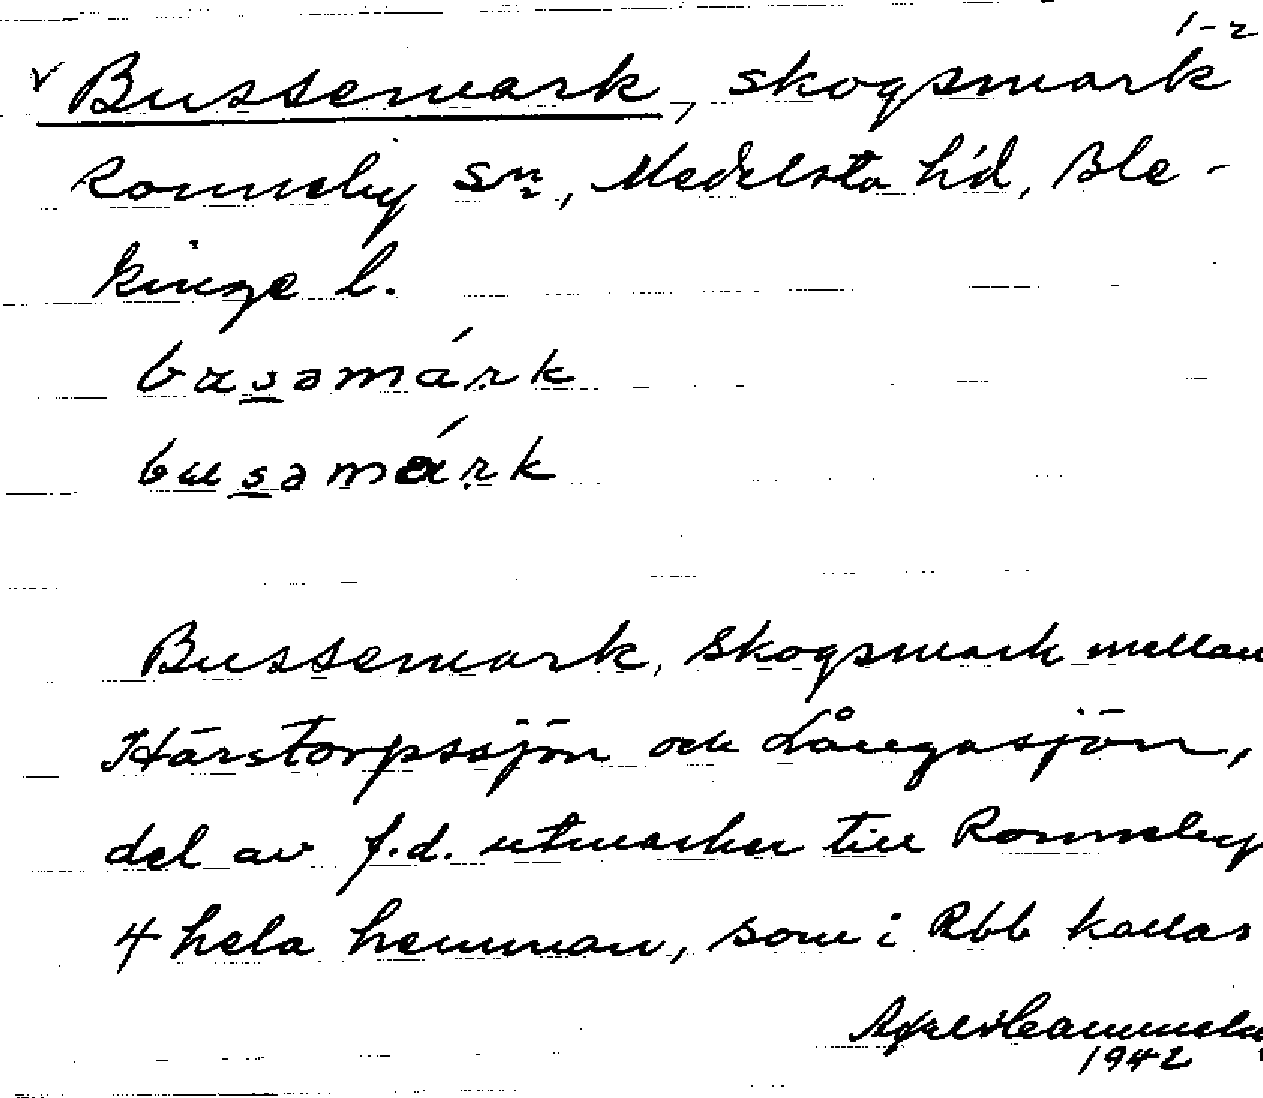 1-2
v Bussemark, skogsmark
Ronneby sn, Medelsta hd, Ble-
kinge l.
busamárk
busamárk
Bussemark, skogsmark mellan
Härstorpssjön och Långasjön,
del av f.d. utmarker till Ronneby
4 hela hemman, som i Rbb kallas
1942